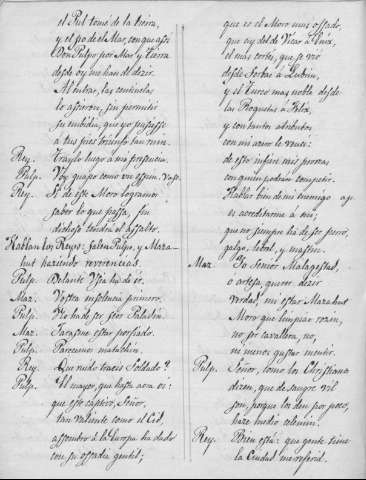 el Pul tome de la tierra,
y el po de el Mar, con que asi
Don Pulpo por Mar, y tierra
desde oy me han de dezir.
Al entrar, las centinelas
lo assieron, sin permitir
su embidia, que yo pusiesse
a tus pies triunfo tan ruin.
Rey. Traylo luego á mi presencia.
Pulp. Voy guapo como un essem. Vase.
Rey. Si de esse Moro logramos
saber lo que passa, fin
dichoso tendrá el assalto.
Hablan los Reyes: salen Pulpo, y Maza-
hut haziendo reverencias.
Pulp. Delante Usia ha de ir.
Maz. Vostra insolencia primero.
Pulp. No ha de ser, seor Paladin.
Maz. Parasme estar porfiado.
Pulp. Pareceme matachin.
Rey. Que ruido traeis Soldado?
Pulp. El mayor, que hasta aora oi:
que este captivo, Señor,
tan valiente como el Cid,
assombro á la Europa ha dado
con su ossadia gentil;
que es el Moro mas ossado,
que ay del de Vicar á
el mas cortes, que se vio
desde á Lubrin,
y el Turco mas noble desde
las Roquetas á Felix,
y con tantos atributos
con mi azero le venci:
de esto infiere mis proezas
con quien podran competir.
Hablar bien de mi enemigo
es acreditarme á mi;
que no siempre ha de ser perro,
galgo, lebrel, y mastin.
Maz. Io Senior Malagestad,
ó artesa, querer dezir
verdad, mi estar Mazahut
Moro que limpiar rozin,
no ser cavallero, no,
ne menos gustar mentir.
Pulp. Señor, como los Christianos
dizen, que de sangre vil
son, porque los den por poco,
haze medio celemin.
Rey. Bien está: que gente tiene
la Ciudad me referid.